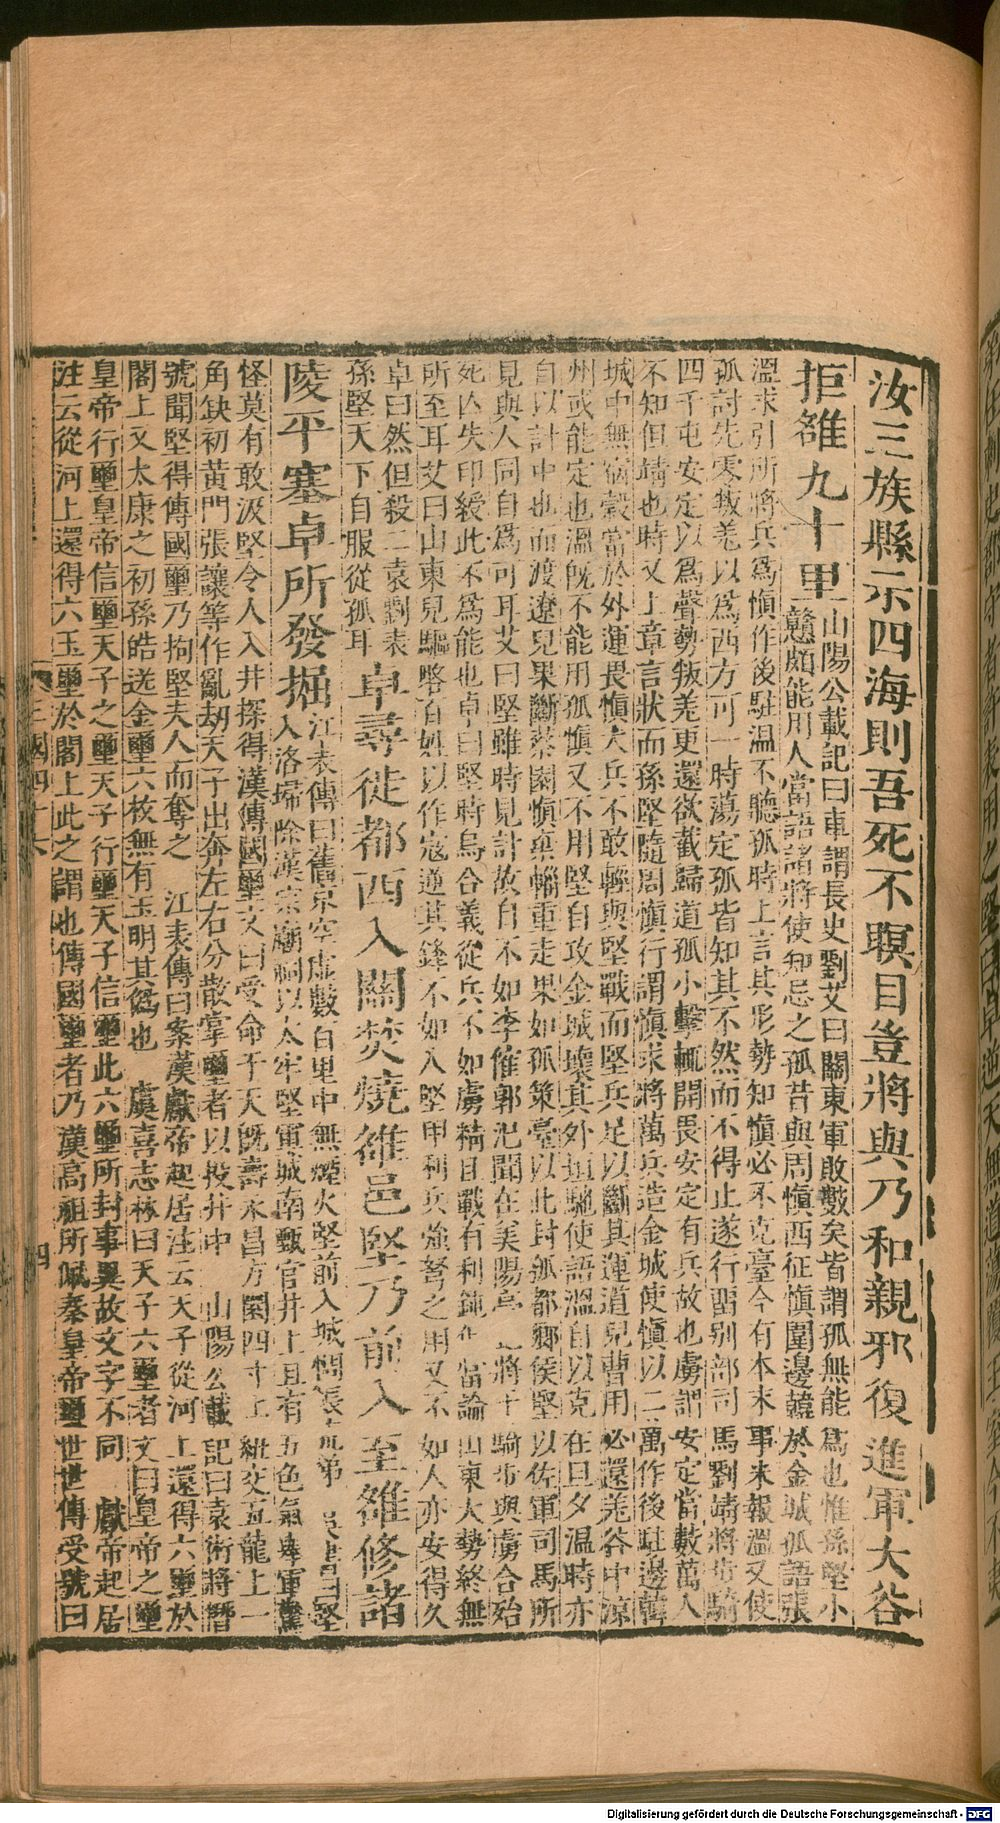 汝三族縣示四海則吾死不瞑目豈將與乃和親邪復進軍大谷
拒雒九十里
山陽公載記曰卓謂長史劉艾曰關東軍敗數矣皆謂孤無能爲也惟孫堅小
戇頗能用人當語諸將使知忌之孤昔與周愼西征愼圍邊韓於金城孤語張
溫求引所將兵爲愼作後駐溫不聽孤時上言其形勢知愼必不克臺今有本末事未報溫又使
孤討先零叛羌以爲西方可一時蕩定孤皆知其不然而不得止遂行留別部司馬劉靖將步騎
四千屯安定以爲聲勢叛羌更還欲截歸道孤小擊輒開畏安定有兵故也虜謂安定當數萬人
不知但靖也時又上章言狀而孫堅隨周愼行謂愼求將萬兵造金城使愼以二萬作後駐邊韓
城中無宿穀當於外運畏愼大兵不敢輕與堅戰而堅兵足以斷其運道兒曹用必還羌谷中涼
州或能定也溫旣不能用孤愼又不用堅自攻金城壞其外垣馳使語溫自以克在旦夕溫時亦
自以計中也而渡遼兒果斷蔡園愼棄輜重走果如孤策臺以此封孤都鄉侯堅以佐軍司馬所
見與人同自爲可耳艾曰堅雖時見計故自不如李傕郭汜聞在美陽亭北將千騎步與虜合殆
死亡失印綬此不爲能也卓曰堅時烏合義從兵不如虜精且戰有利鈍但當論山東大勢終無
所至耳艾曰山東兒驅略百姓以作寇逆其鋒不如人堅甲利兵強弩之用又不如人亦安得久
卓曰然但殺二袁劉表
孫堅天下自服從孤耳
卓尋徙都西入關焚燒雒邑堅乃前入至雒修諸
陵平塞卓所發掘
江表傳曰舊京空虛數百里中無煙火堅前入城惆悵流涕 吳書曰堅
入洛埽除漢宗廟祠以太牢堅軍城南甄官井上旦有五色氣舉軍驚
怪莫有敢汲堅令人入井探得漢傳國璽文曰受命于天旣壽永昌方圜四寸上紐交五龍上一
角缺初黃門張讓等作亂劫天子出奔左右分散掌璽者以投井中 山陽公載記曰袁術將僭
號聞堅得傳國璽乃拘堅夫人而奪之 江表傳曰案漢獻帝起居注云天子從河上還得六璽於
閣上又太康之初孫皓送金璽六枚無有玉明其僞也 虞喜志林曰天子六璽者文曰皇帝之璽
皇帝行璽皇帝信璽天子之璽天子行璽天子信璽此六璽所封事異故文字不同 獻帝起居
注云從河上還得六玉璽於閣上此之謂也傳國璽者乃漢高祖所佩秦皇帝璽世世傳受號曰
Digitalisierung gefördert durch die Deutsche Forschungsgemeinschaft - DFG